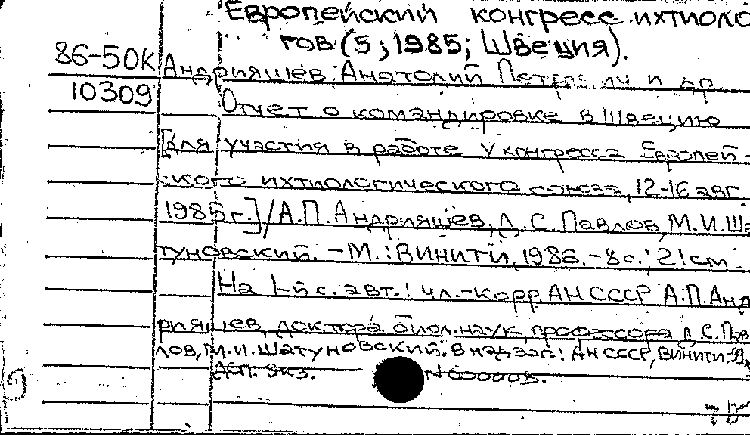 Европейский конгресс ихтиоло
гов (5; 1985; Швеция).
86-50К
Андрияшев Анатолий Петрович и др
10309
Отчет о командировке в Швецию
[Для участия в работе V конгресса Европей-
ского ихтиологического союза, 12-16 авг.
1985 г.] / А.П. Андрияшев, Д.С. Павлов, М.И. Ша
туновский. - М.: ВИНИТИ, 1986. - 8 с.; 21 см
На 1-й с. авт.: чл.-корр АН СССР А.П. Анд
рияшев, доктора биол. наук, профессора Д.С. Пав
лов, М.И. Шатуновский. В надзаг.: АН СССР, ВИНИТИ.
экз.